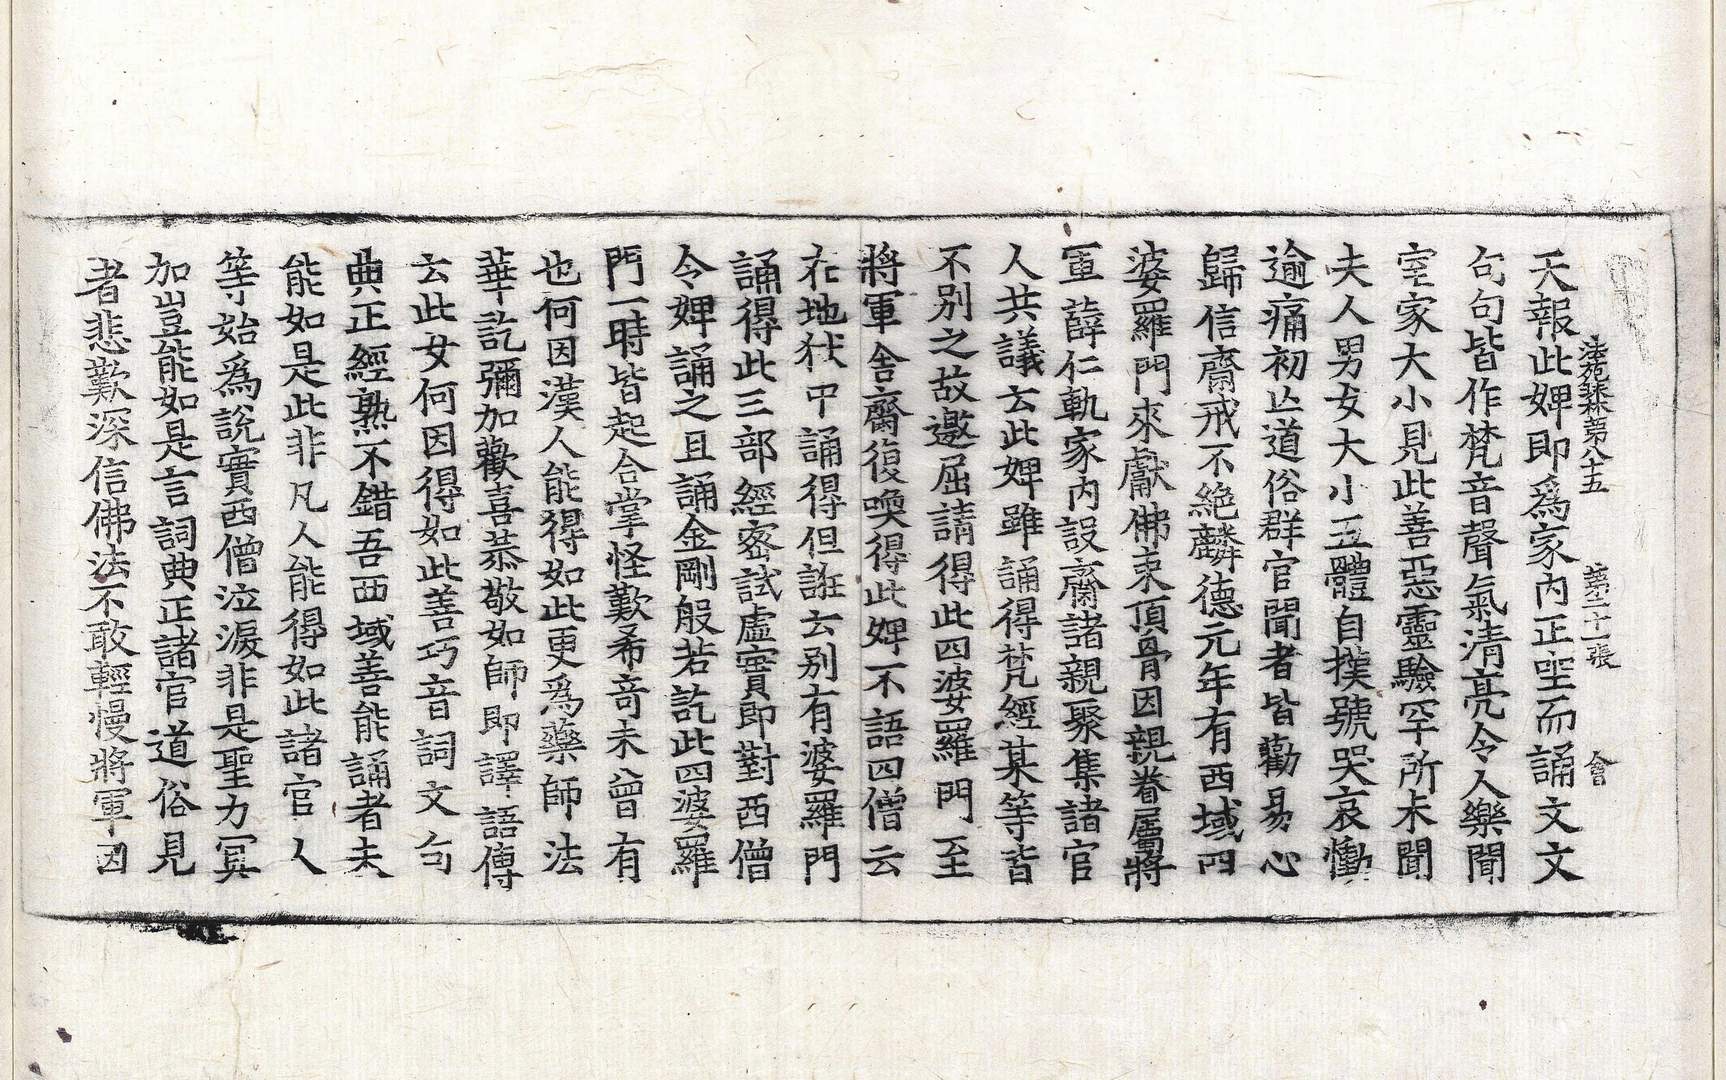 法苑珠林第八十五　第二十一張　會
天報此婢即爲家內正坐而誦文文
句句皆作梵音聲氣清亮令人樂聞
室家大小見此善惡靈驗罕所未聞
夫人男女大小五體自撲號哭哀慟
逾痛初亡道俗群官聞者皆勸易心
歸信齋戒不絶麟德元年有西域四
婆羅門來獻佛束頂骨因親眷屬將
軍薛仁軌家內設齋諸親聚集諸官
人共議云此婢雖誦得梵經某等皆
不別之故邀屈請得此四婆羅門至
將軍舍齋復喚得此婢不語四僧云
在地獄中誦得但誑云別有婆羅門
誦得此三部經密試虛實即對西僧
令婢誦之且誦金剛般若訖此四婆羅
門一時皆起合掌怪歎希奇未曾有
也何因漢人能得如此更爲藥師法
華訖彌加歡喜恭敬如師即譯語傳
云此女何因得如此善巧音詞文句
典正經熟不錯吾西域善能誦者未
能如是此非凡人能得如此諸官人
等始爲說實西僧泣淚非是聖力冥
加豈能如是言詞典正諸官道俗見
者悲歎深信佛法不敢輕慢將軍因